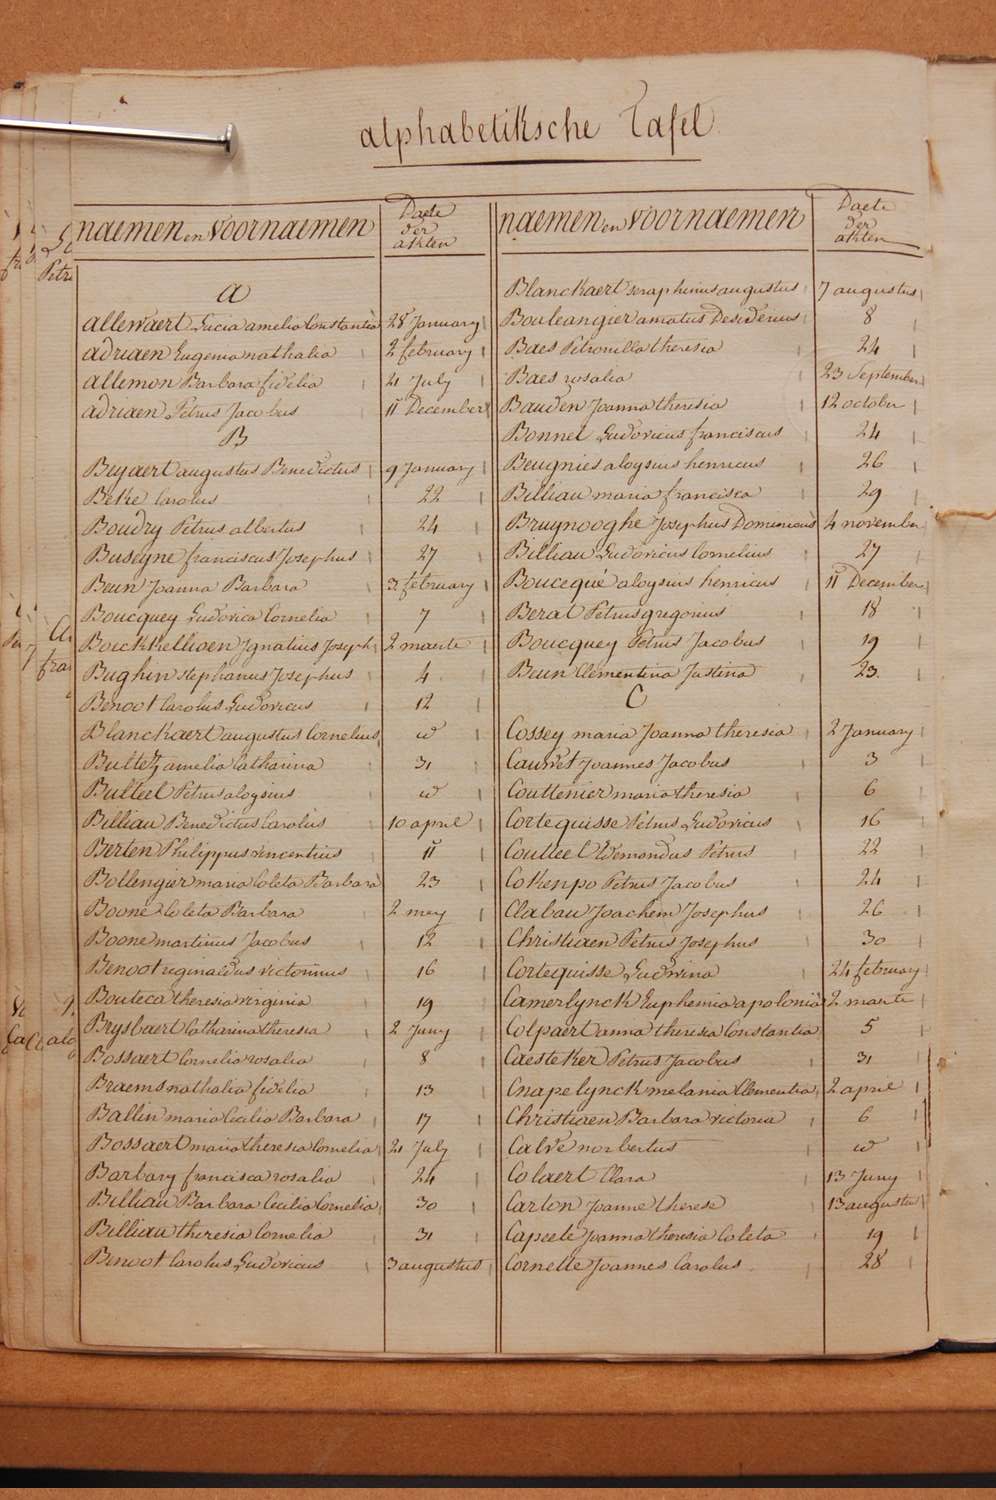 alphabetiksche Tafel
naemen en voornaemen
Daete der akten
A
allewaert Lucia amelia Constantia 28 January
adriaen Eugenia nathalia 2 february
allemon Barbara fidelia 21 July
adriaen Petrus Jacobus 11 December
B
Buyaert augustus Benedictus 9 January
Beke Carolus 22
Boudry Petrus albertus 24
Buseyne franciscus Josephus 27
Beun Joanna Barbara 3 february
Boucquey Ludovica Cornelia 7
Bouckhellioen Ignatius Joseph 2 maerte
Bughin stephanus Josephus 4
Benoot Carolus Ludovicus 12
Blanckaert augustus Cornelius w
Bultez amelia Catharina 31
Bulteel Petrus aloysius w
Billiau Benedictus Carolus 10 april
Berten Philippus vincentius 11
Bollengier maria Coleta Barbara 23
Boone Coleta Barbara 2 mey
Boone martinus Jacobus 12
Benoot reginaldus victorinus 16
Bouteca theresia virginia 19
Brysbaert Catharina theresia 2 Juny
Bossaert Cornelia rosalia 8
Braems nathalia fidelia 13
Ballin maria Cecilia Barbara 17
Bossaert maria theresia Cornelia 21 July
Barbary francisca rosalia 24
Billiau Barbara Cecilia Cornelia 30
Billiau theresia Cornelia 31
Benoot Carolus Ludovicus 3 augustus
naemen en voornaemen
Daete der akten
Blanckaert seraphinus augustus 7 augustus
Bouleangier amatus Desiderius 8
Baes Petronilla theresia 24
Baes rosalia 23 September
Bauden Joanna theresia 12 october
Bonnel Ludovicus franciscus 24
Beugnies aloysius henricus 26
Billiau maria francisca 29
Bruynooghe Josephus Dominicus 4 november
Billiau Ludovicus Cornelius 27
Boucequé aloysius henricus 11 December
Berat Petrus gregorius 18
Boucquey Petrus Jacobus 19
Beun Clementina Justina 23
C
Cossey maria Joanna theresia 2 January
Cauwet Joannes Jacobus 3
Couttenier maria theresia 6
Cortequisse Petrus Ludovicus 16
Coutteel Edemondus Petrus 22
Cokenpo Petrus Jacobus 24
Clabau Joachem Josephus 26
Christiaen Petrus Josephus 30
Cortequisse Ludwina 24 february
Camerlynck Euphemia apolonia 2 maerte
Colpaert anna theresia Constantia 5
Caesteker Petrus Jacobus 31
Cnapelynck melania Clementia 2 april
Christiaen Barbara victoria 6
Calve norbertus w
Colaert Clara 13 Juny
Carton Joanne therese 13 augusta
Capeele Joanna theresia Coleta 19
Cornette Joannes Carolus 28